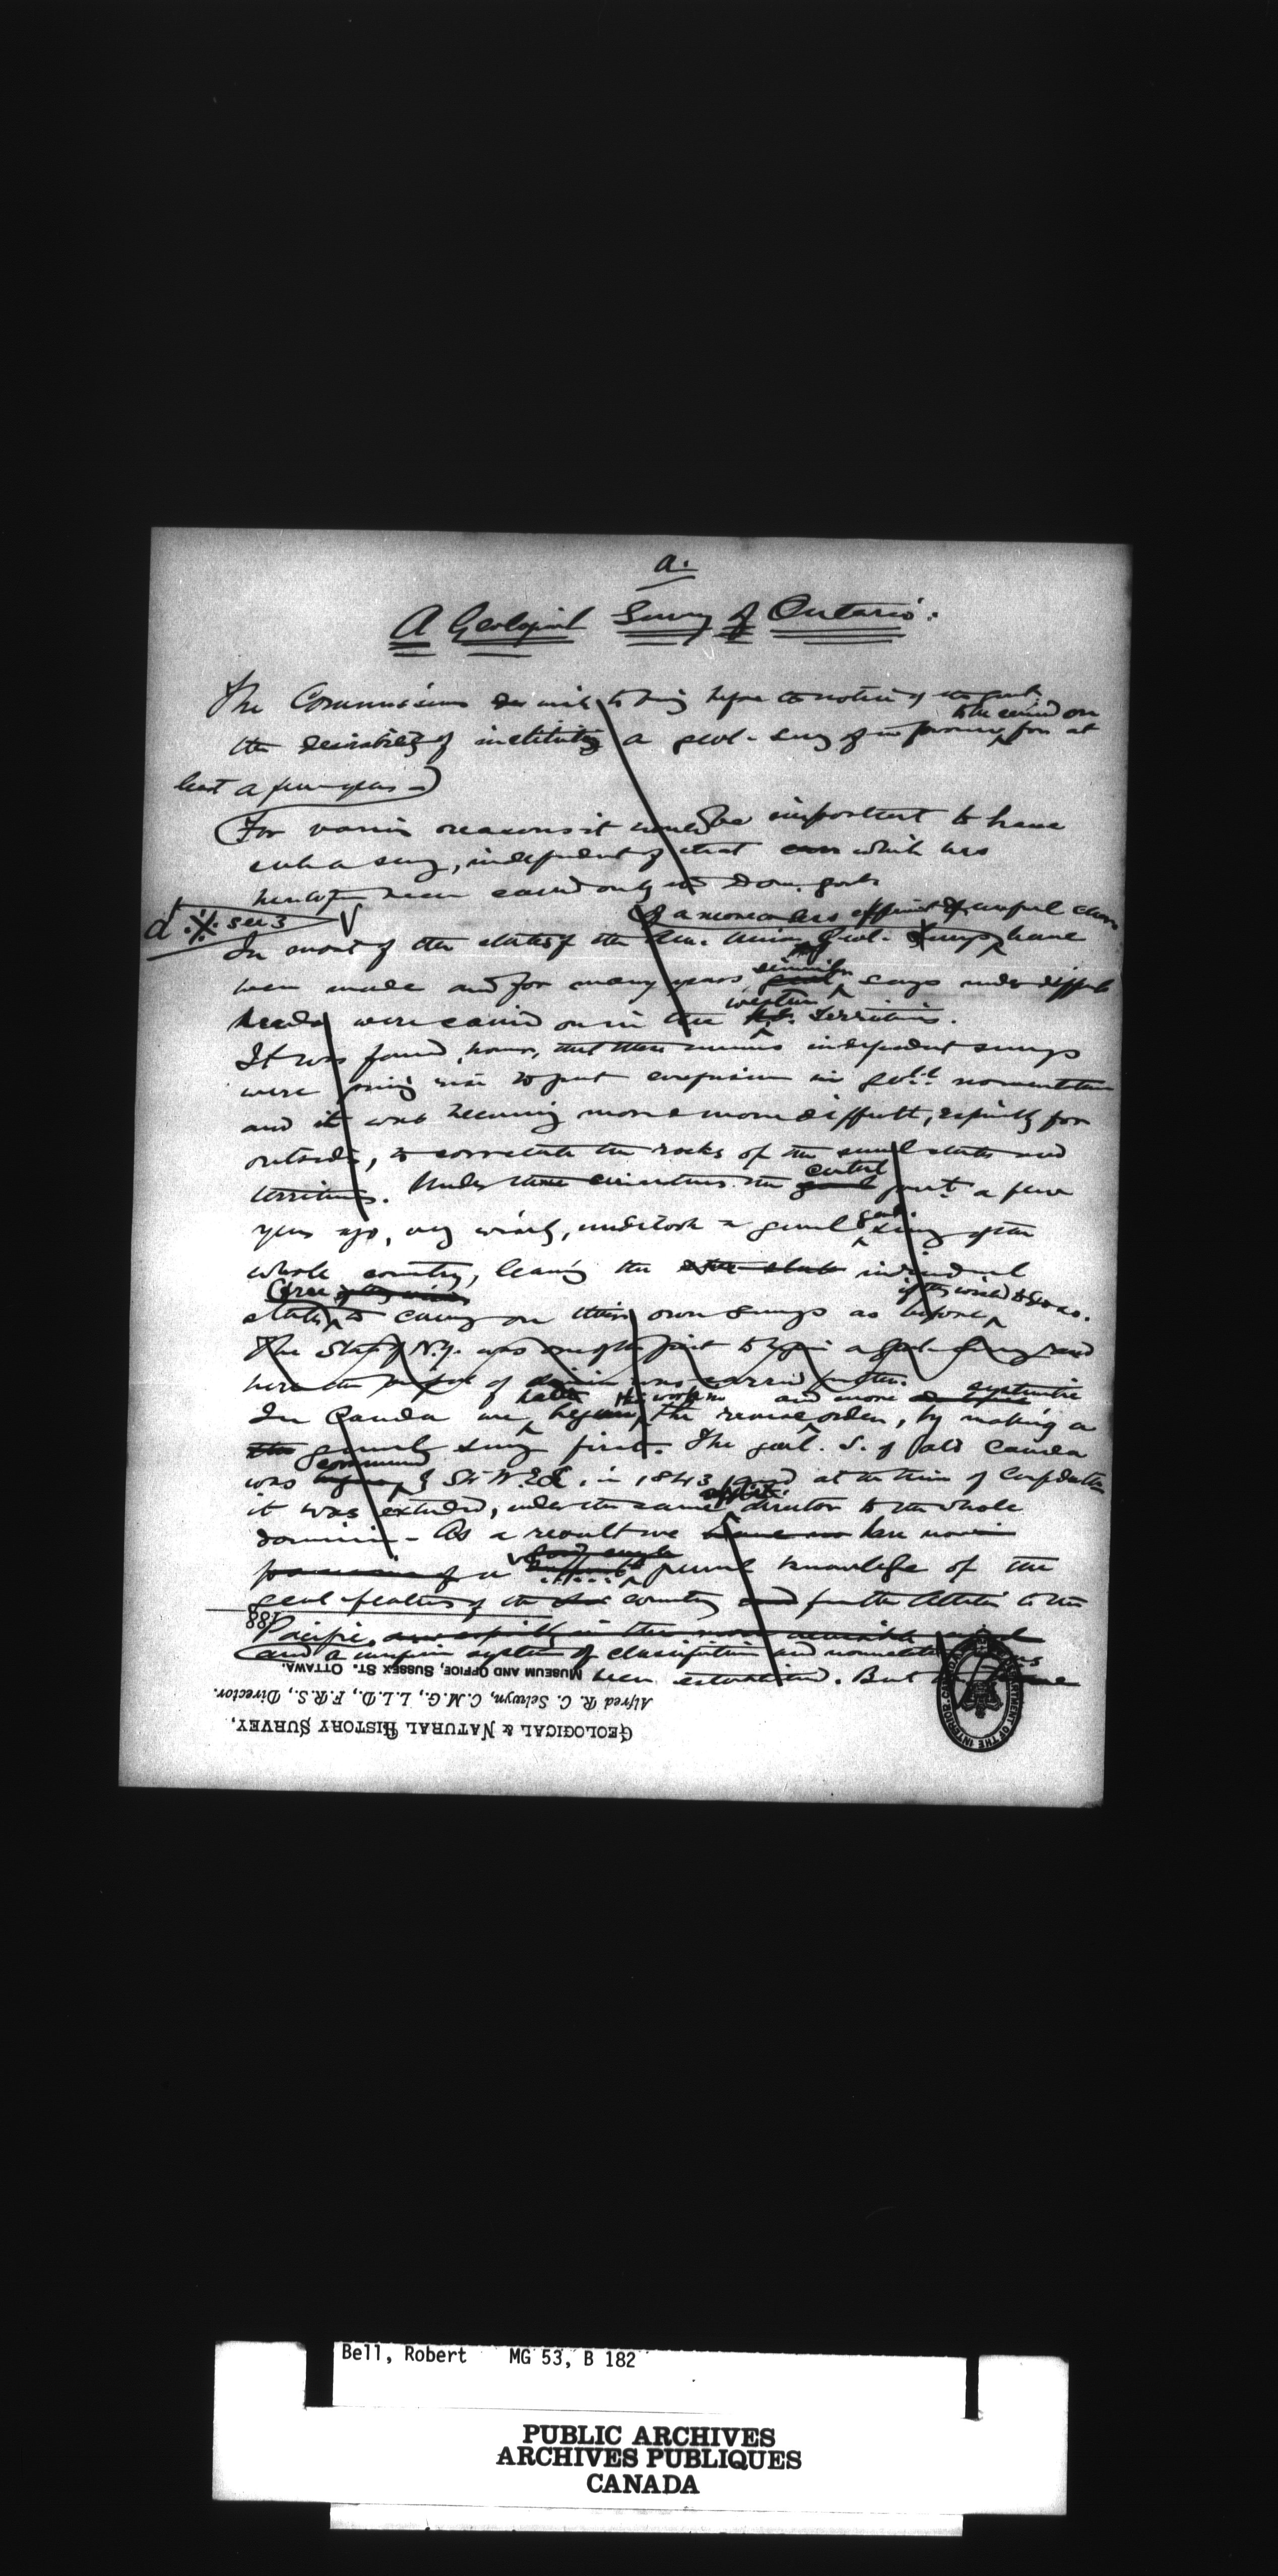 a.
A Geological Survey of Ontario.
The Commissioners desire to bring before the notice of the govt.
to be carried on
the desirability of instituting a geol. survey of the province for at
least a few years
For various reasons it would be important to have
such a survey, independent of that which has
heretofore been carried on by the Dom. govt.
d ※ see 3
of a more or less efficient & useful char
In most of the states of the Am. Union Geol. Surveys have
similar
been made and for many years surveys under different
western
heads were carried on in the Territories.
It was found, however, that these numerous independent surveys
were giving rise to great confusion in geol. nomenclature
and it was becoming more & more difficult, especially for
outsiders, to correlate the rocks of the several states and
central
territories. Under these circumstances the govt. a few
geol.
years ago, very wisely, undertook a general survey of the
whole country, leaving the individual
free if they wished to do so.
states to carry on their own surveys as before
The State of N.Y. was one of the first to begin a geol. survey and
here the
systematic
In Canada we began the work in the reverse order, by making a
general survey first. The geol. S. of old Canada
commenced
was by Sir W.E.L. in 1843 and at the time of Confederation
it was extended, under the same director to the whole
dominion - As a result we have now
good enough
general knowledge of the
geol. features of the country from the Atlantic to the
Pacific,
and a uniform system of classification and nomenclature has
been established. But
188
MUSEUM AND OFFICE, SUSSEX ST. OTTAWA.
Alfred R. C. Selwyn, C.M.G., LL.D., F.R.S., Director.
GEOLOGICAL & NATURAL HISTORY SURVEY,
DEPARTMENT OF THE INTERIOR
Bell, Robert MG 53, B 182
PUBLIC ARCHIVES
ARCHIVES PUBLIQUES
CANADA